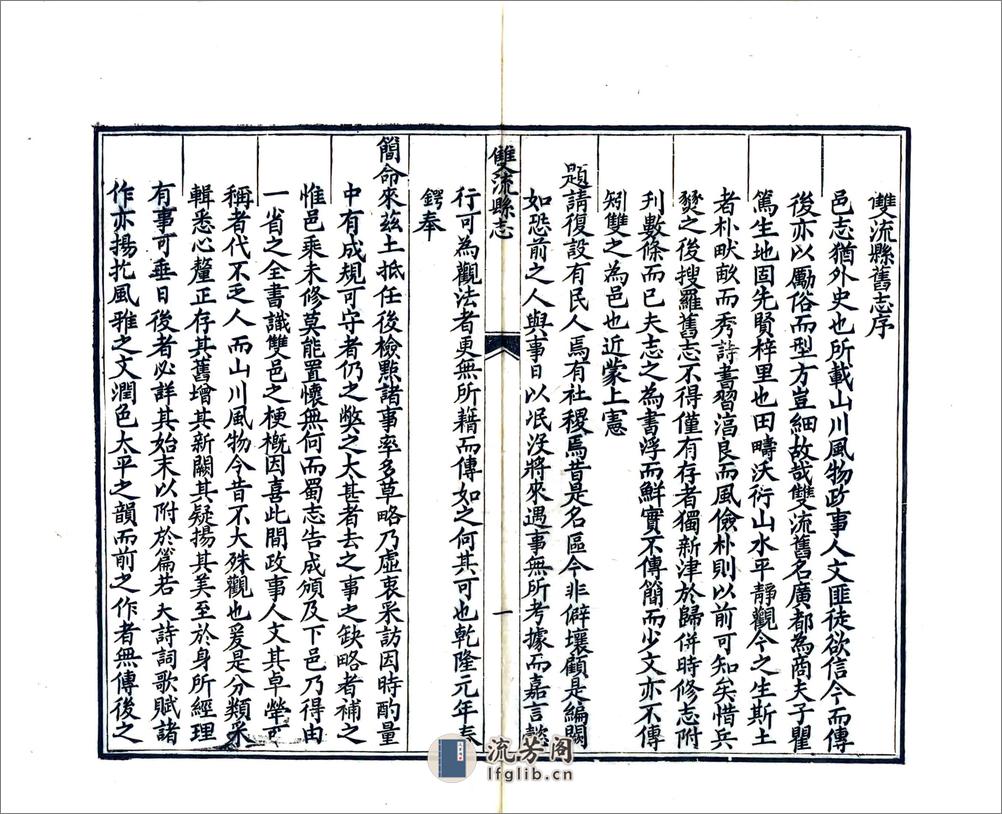 雙流縣舊志序
邑志猶外史也所載山川風物政事人文匪徒欲信今而傳
後亦以勵俗而型方豈細故哉雙流舊名廣都為商夫子瞿
篤生地固先賢梓里也田疇沃衍山水平靜觀今之生斯土
者朴畎畝而秀詩書習溫良而風儉朴則以前可知矣惜兵
燹之後搜羅舊志不得僅有存者獨新津於歸併時修志附
刊數條而已夫志之為書浮而鮮實不傳簡而少文亦不傳
矧雙之為邑也近蒙上憲
題請復設有民人焉有社稷焉昔是名區今非僻壤顧是編闕
如恐前之人與事日以泯沒將來遇事無所考據而嘉言懿
雙流縣志
一
行可為觀法者更無所藉而傳如之何其可也乾隆元年春
鍔奉
簡命來茲土抵任後檢點諸事率多草略乃虛衷采訪因時酌量
中有成規可守者仍之弊之大甚者去之事之缺略者補之
惟邑乘未修莫能置懷無何而蜀志告成頒及下邑乃得由
一省之全書識雙邑之梗概因喜此間政事人文其卓犖可
稱者代不乏人而山川風物今昔不大殊觀也爰是分類采
輯悉心釐正存其舊增其新闕其疑揚其美至於身所經理
有事可垂日後者必詳其始末以附於篇若夫詩詞歌賦諸
作亦揚扢風雅之文潤色太平之韻而前之作者無傳後之
流芳阁
lfglib.cn